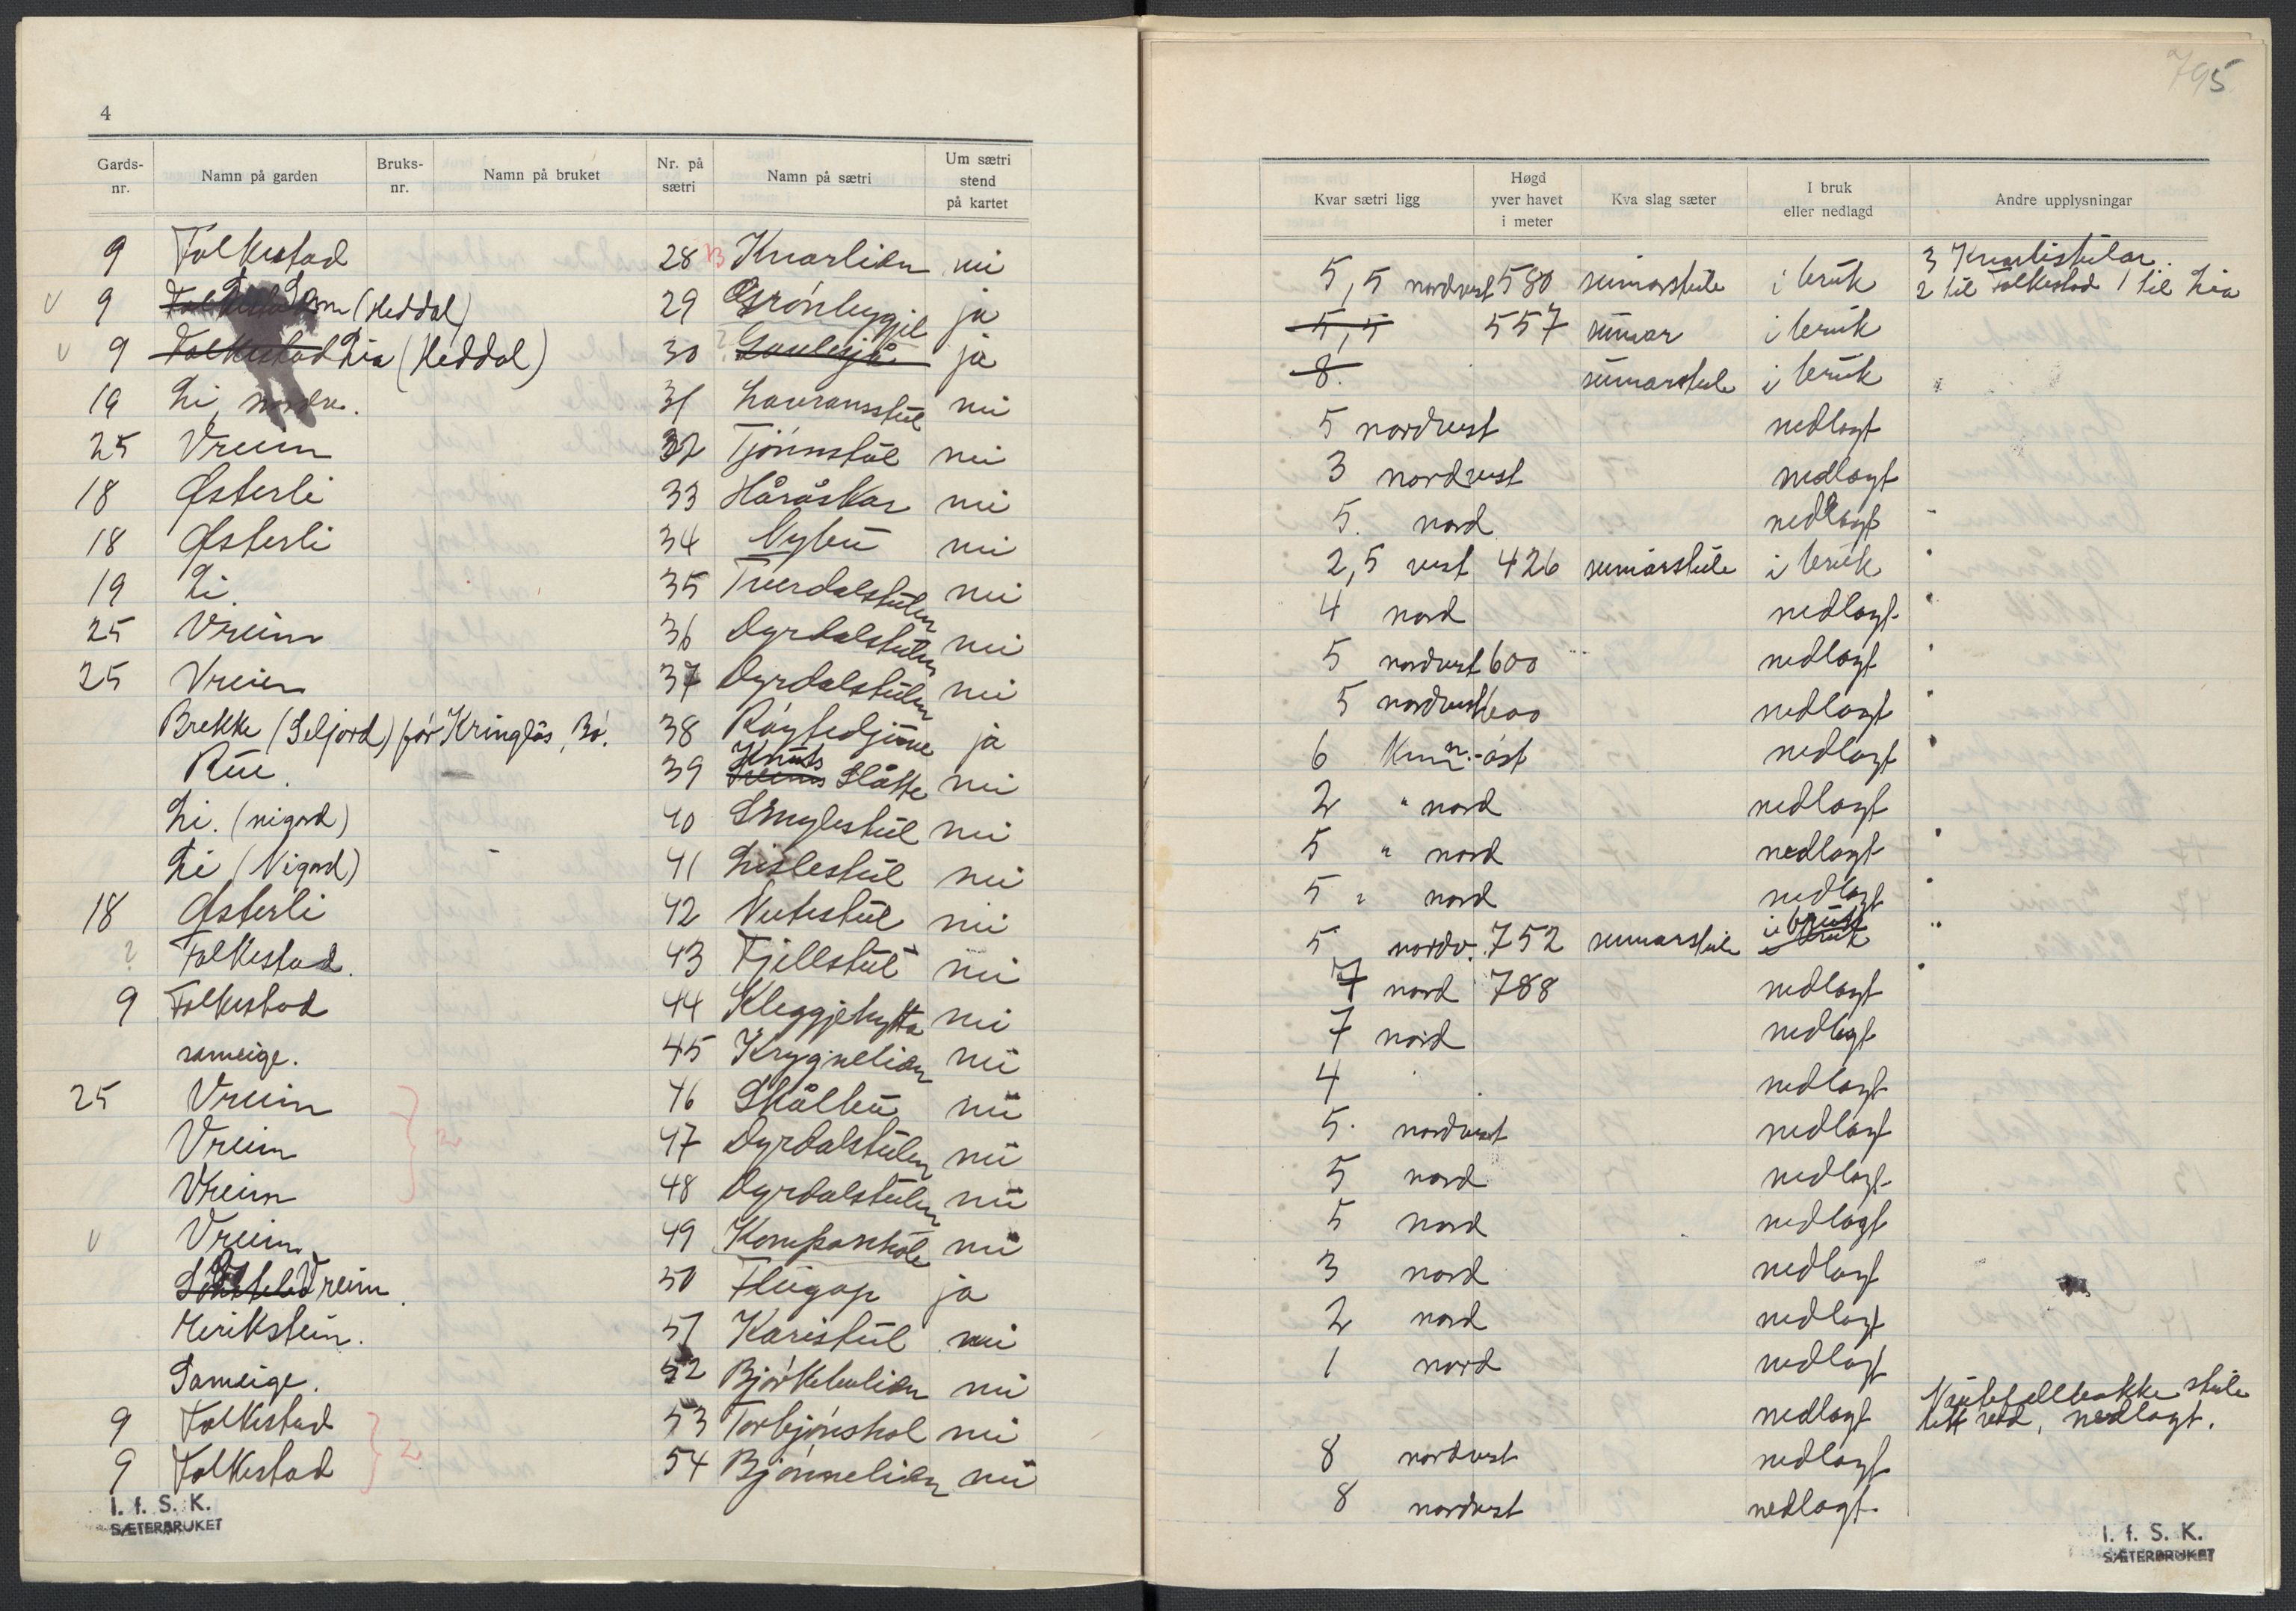 4
Gards-nr. Namn på garden Bruks-nr. Namn på bruket Nr. på sætri Namn på sætri Um sætri stend på kartet
9 Folkestad 28 Knarlian nei
v 9 (Heddal) 29 Grönbyggjil ja
v 9 Folkestad Lia (Heddal) 30 ? Gaulesjå ja
19 Li, nordre. 31 Lavransstul nei
25 Vreim 32 Tjönnstul nei
18 Østerli 33 Håråskar nei
18 Østerli 34 Nybu nei
19 Li 35 Tverdalstulen nei
25 Vreim 36 Dyrdalstulen nei
25 Vreim 37 Dyrdalstulen nei
Brekke (Seljord) för Kringlås, Bö. 38 Röysedjuve ja
Rue. 39 Knuts Slåtte nei
Li. (nigard) 40 Smylestul nei
Li (Nigard) 41 Lislestul nei
18 Østerli 42 Nutestul nei
? Folkestad. 43 Fjellstul nei
9 Folkestad 44 Kleggjehytta nei
sameige. 45 Krygnelian nei
25 Vreim 46 Skålbu nei
Vreim 2 47 Dyrdalstulen nei
Vreim 48 Dyrdalstulen nei
v Vreim 49 Kompanhole nei
Vreim. 50 Flugap ja
Herikstein. 51 Karistul nei
Sameige. 52 Björkebulian nei
9 Folkestad 53 Torbjönshol nei
9 Folkestad 2 54 Bjönnelian nei
I. f. S. K.
SÆTERBRUKET
795
Kvar sætri ligg Høgd yver havet i meter Kva slag sæter I bruk eller nedlagd Andre upplysningar
3 Knarlistular.
5,5 nordvest 580 sumarstule i bruk 2 til Folkestad 1 til Lia
5,5 557 sumar i bruk
8. sumarstule i bruk
5 nordvest nedlagt
3 nordvest nedlagt
5. nord nedlagt
2,5 vest 426 sumarstule i bruk
4 nord nedlagt
5 nordvest 600 nedlagt
5 nordvest 600 nedlagt
6 Km n.-öst nedlagt
2 " nord nedlagt
5 " nord nedlagt
5 " nord nedlagt
5 nordv. 752 sumarstule i bruk
7 nord 788 nedlagt
7 nord nedlagt
4 nedlagt
5. nordvest nedlagt
5 nord nedlagt
5 nord nedlagt
3 nord nedlagt
2 nord nedlagt
1 nord nedlagt
nedlagt stule tett ved, nedlagt.
8 nordvest nedlagt
8 nordvest nedlagt.
I. f. S. K.
SÆTERBRUKET